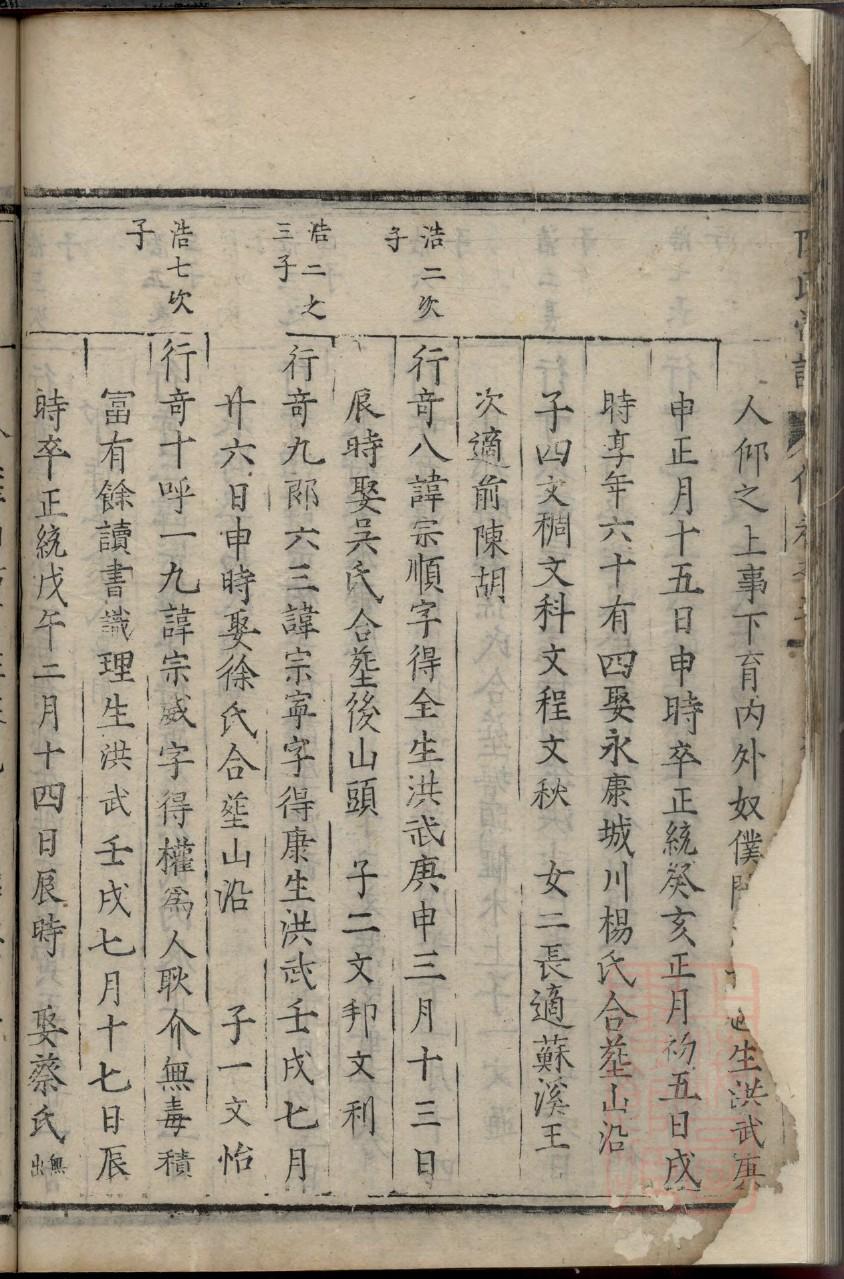 人仰之上事下育內外奴僕 生洪武庚
申正月十五日申時卒正統癸亥正月初五日戌
時享年六十有四娶永康城川楊氏合塟山沿
子四文稠文科文程文秋 女二長適蘇溪王
次適前陳胡
浩二次
子
行奇八諱宗順字得全生洪武庚申三月十三日
辰時娶吳氏合塟後山頭 子二文邦文利
浩二之
三子
行奇九郎六三諱宗寧字得康生洪武壬戌七月
廿六日申時娶徐氏合塟山沿 子一文怡
浩七次
子
行奇十呼一九諱宗威字得權為人耿介無毒積
富有餘讀書識理生洪武壬戌七月十七日辰
時卒正統戊午二月十四日辰時 娶蔡氏無出